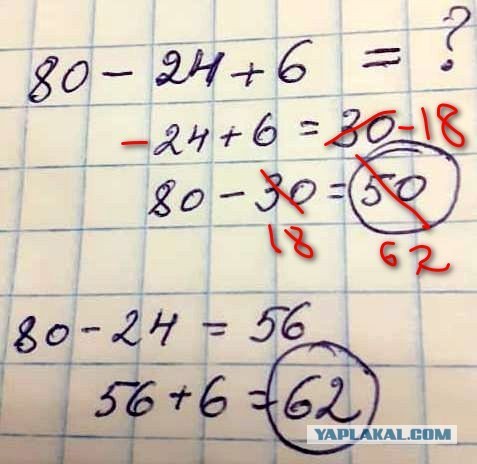 80 - 24 + 6 = ?
- 24 + 6 = 30 - 18
80 - 30 = 50
18 62
80 - 24 = 56
56 + 6 = 62
YAPLAKAL.COM